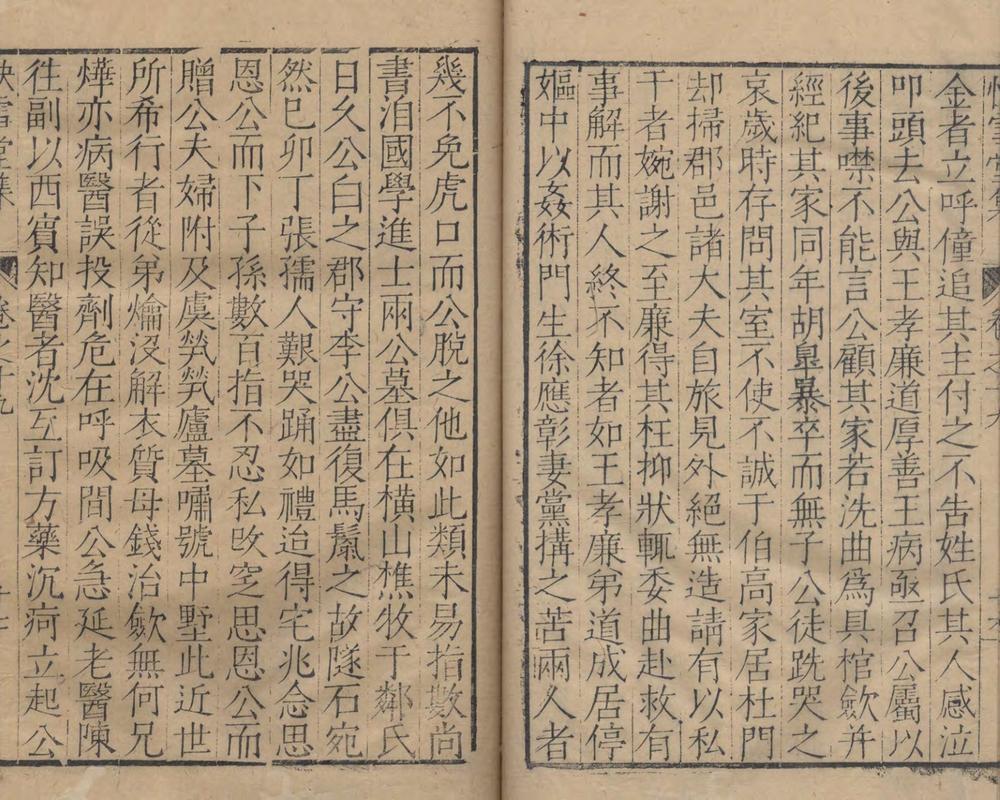 金者立呼僮追其主付之不告姓氏其人感泣
叩頭去公與王孝廉道厚善王病亟召公屬以
後事噤不能言公顧其家若洗曲為具棺歛并
經紀其家同年胡暴卒而無子公徒跣哭之
哀歲時存問其室不使不誠于伯高家居杜門
却掃郡邑諸大夫自旅見外絕無造請有以私
干者婉謝之至廉得其枉抑狀輒委曲赴救有
事解而其人終不知者如王孝廉弟道成居停
嫗中以姦術門生徐應彰妻黨搆之苦兩人者
幾不免虎口而公脫之他如此類未易指數尚
書洎國學進士兩公墓俱在橫山樵牧于鄰氏
日久公白之郡守李公盡復馬鬛之故隧石宛
然巳卯丁張孺人艱哭踊如禮迨得宅兆念思
恩公而下子孫數百指不忍私改窆思恩公而
贈公夫婦附及虞煢煢廬墓嘯號中墅此近世
所希行者從弟爚沒解衣質母錢治歛無何兄
燁亦病醫誤投劑危在呼吸間公急延老醫陳
徃副以西賓知醫者沈互訂方藥沉疴立起公
卷之十九